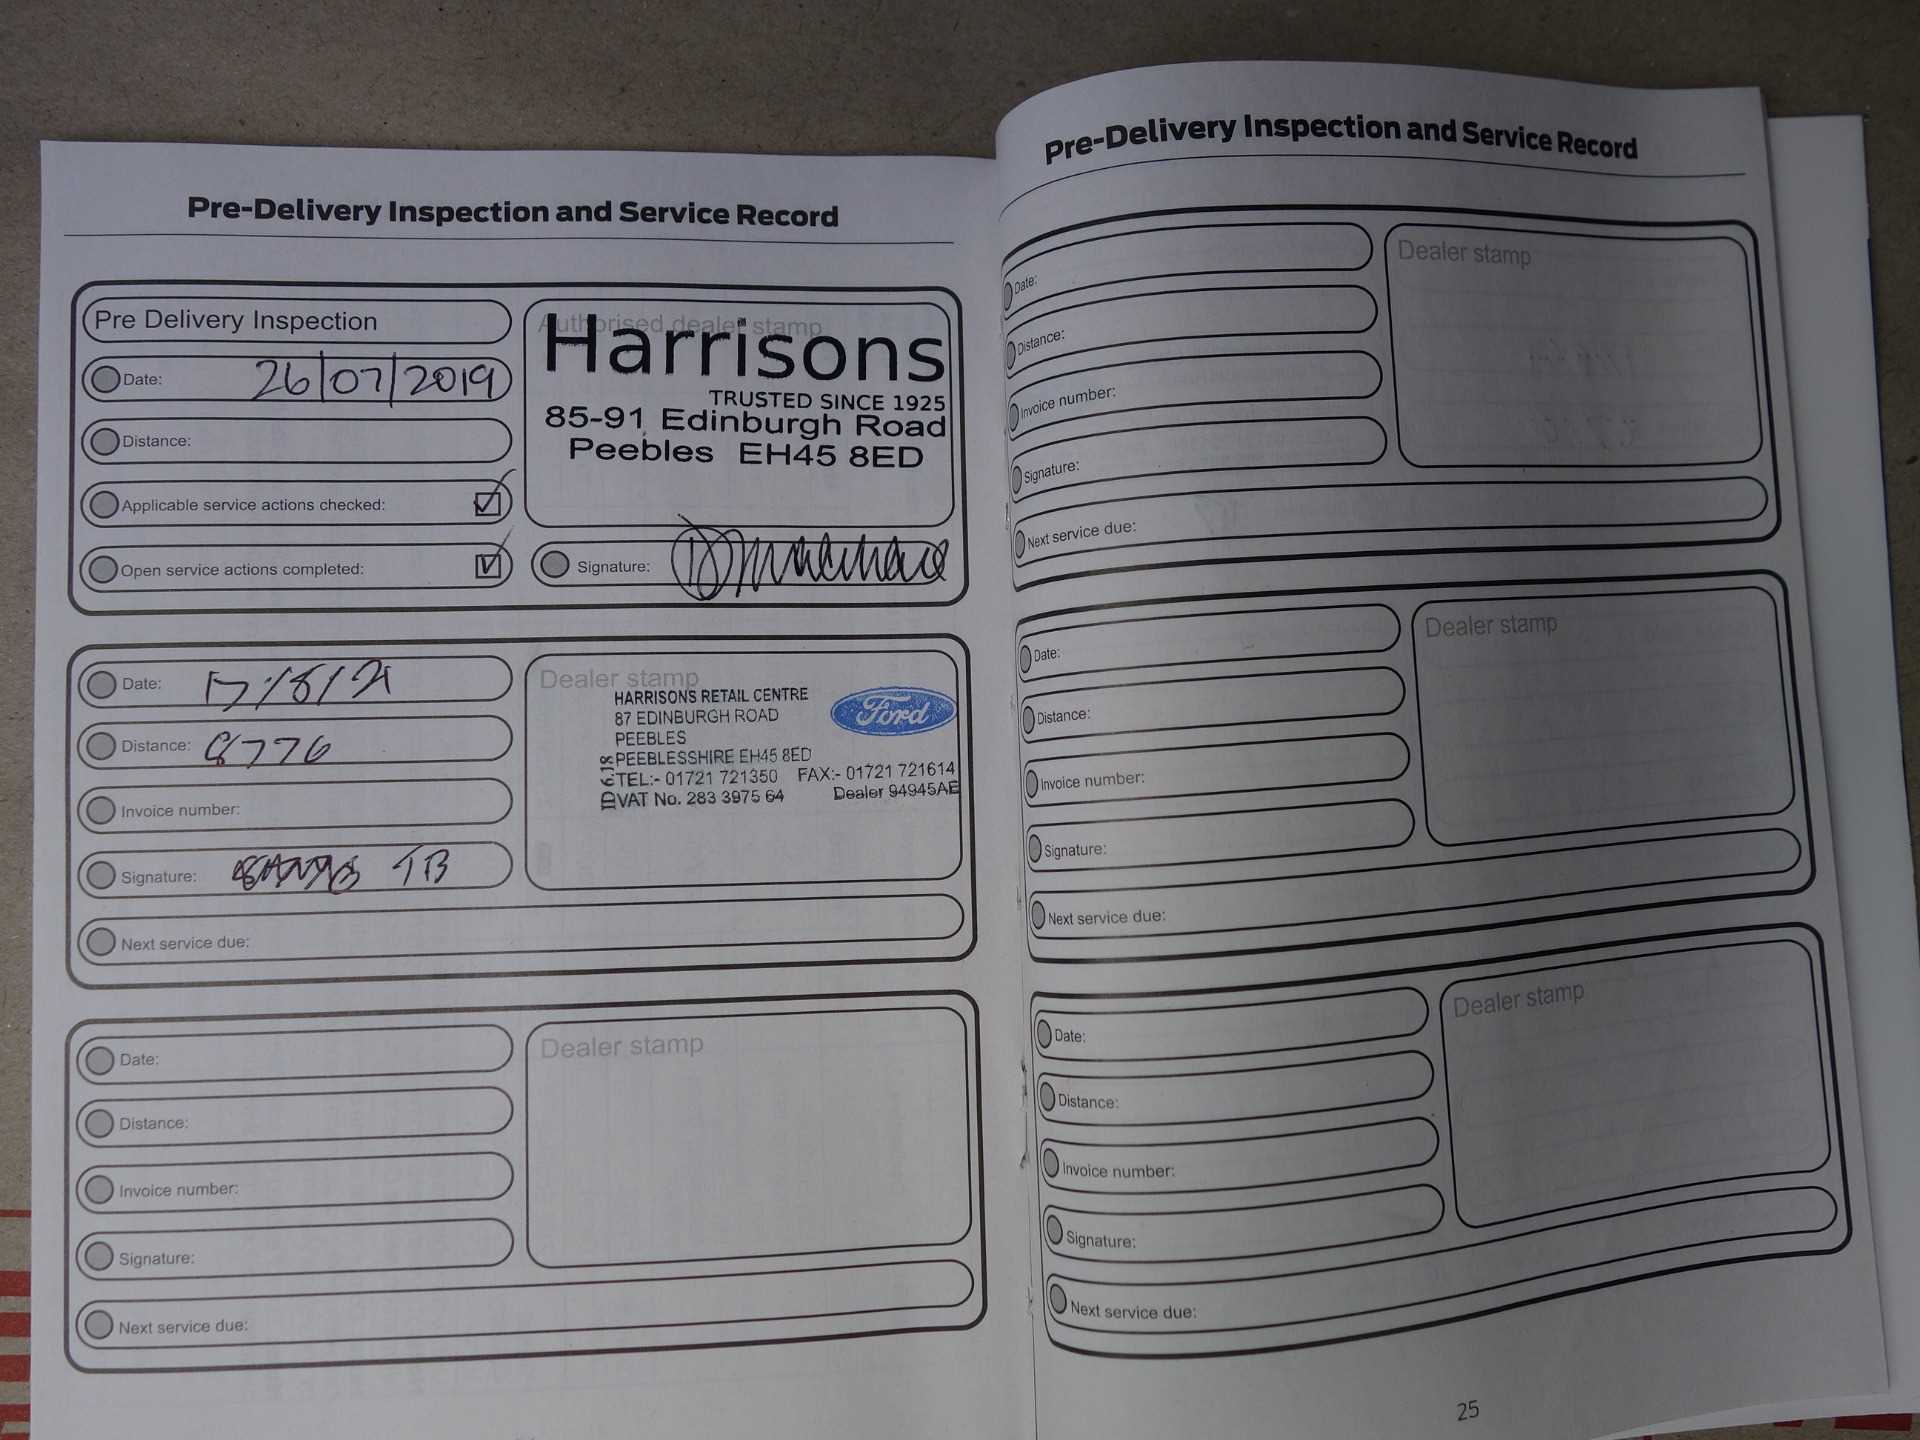 Pre-Delivery Inspection and Service Record
Pre Delivery Inspection
Date: 26/07/2019
Distance:
Applicable service actions checked:
Open service actions completed:
Authorised dealer stamp
Harrisons
TRUSTED SINCE 1925
85-91 Edinburgh Road
Peebles EH45 8ED
Signature:
Date: 17/8/21
Distance: 8776
Invoice number:
Signature: TB
Next service due:
Dealer stamp
HARRISONS RETAIL CENTRE
87 EDINBURGH ROAD
PEEBLES
PEEBLESSHIRE EH45 8ED
TEL:- 01721 721350 FAX:- 01721 721614
VAT No. 283 3975 64 Dealer 94945AE
Ford
Date:
Distance:
Invoice number:
Signature:
Next service due:
Dealer stamp
Pre-Delivery Inspection and Service Record
Date:
Distance:
Invoice number:
Signature:
Next service due:
Dealer stamp
Date:
Distance:
Invoice number:
Signature:
Next service due:
Dealer stamp
Date:
Distance:
Invoice number:
Signature:
Next service due:
Dealer stamp
25